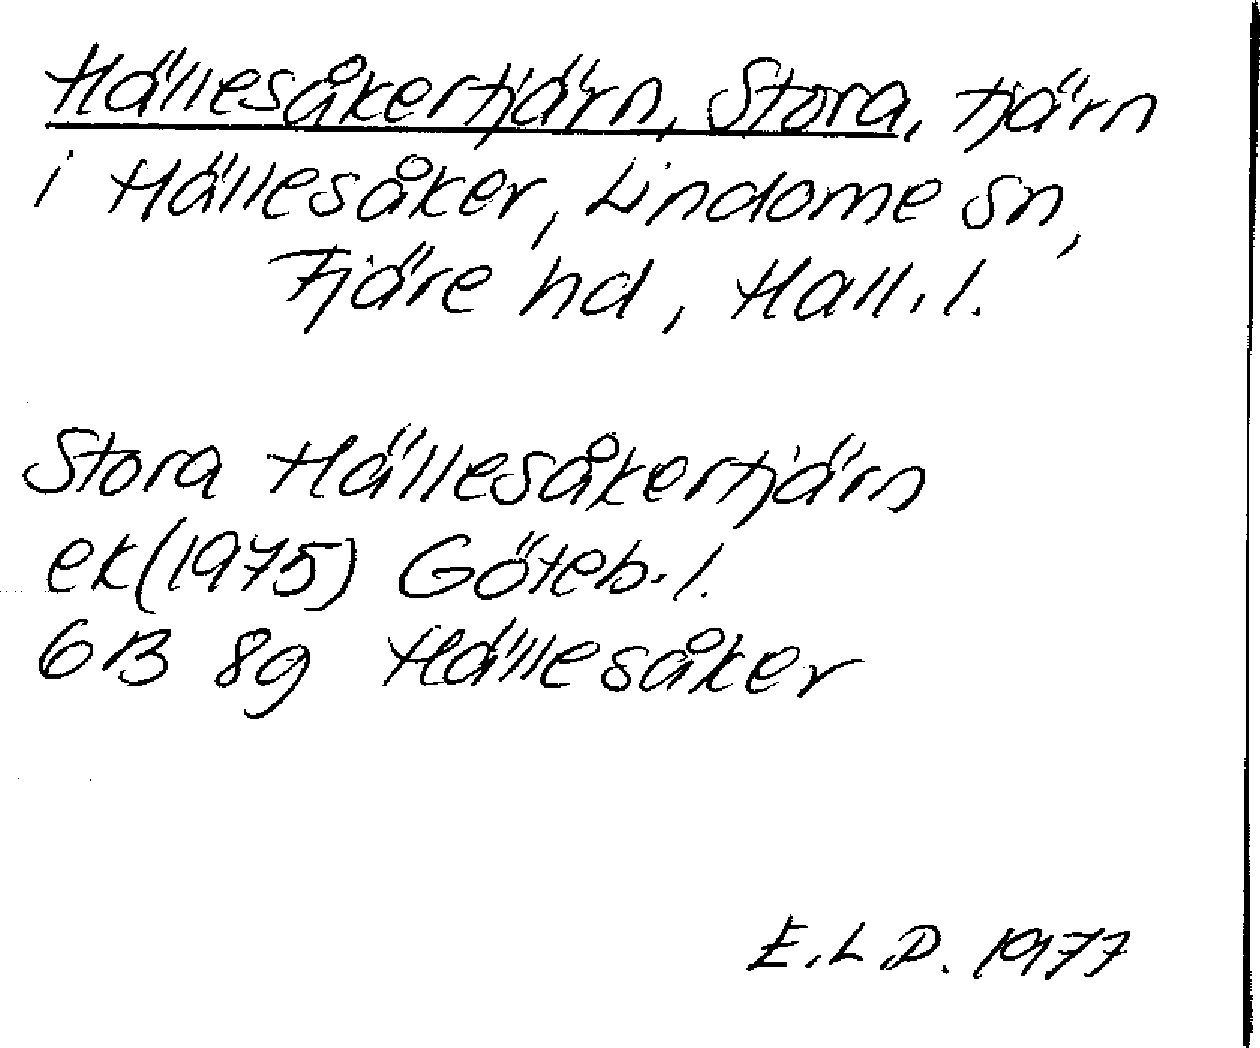 Hällesåkertjärn, Stora, tjärn
i Hällesåker, Lindome sn,
Fjäre hd, Hall. l.
Stora Hällesåkertjärn
ek (1975) Göteb. l.
6B 8g Hällesåker
E. L D. 1977